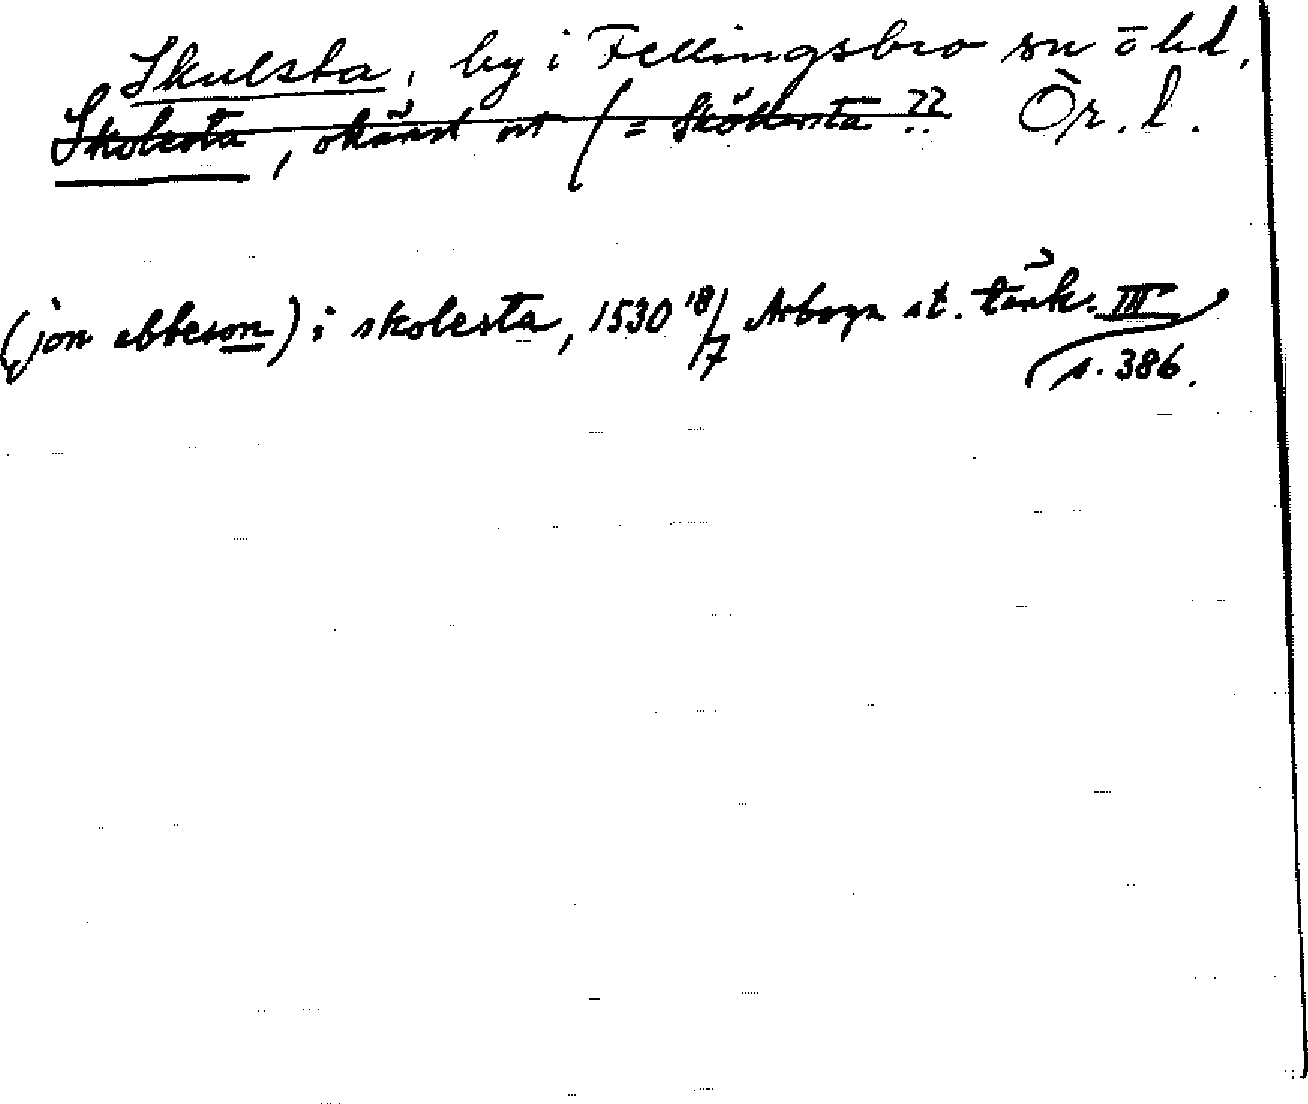 Skulsta, by i Fellingsbro sn o hd,
Skolesta, okänd ort (= Sköllersta ?? Ör. l.
(jon ebbeson) i skolesta, 1530 18/7 Arboga st. tänk. III
s. 386.